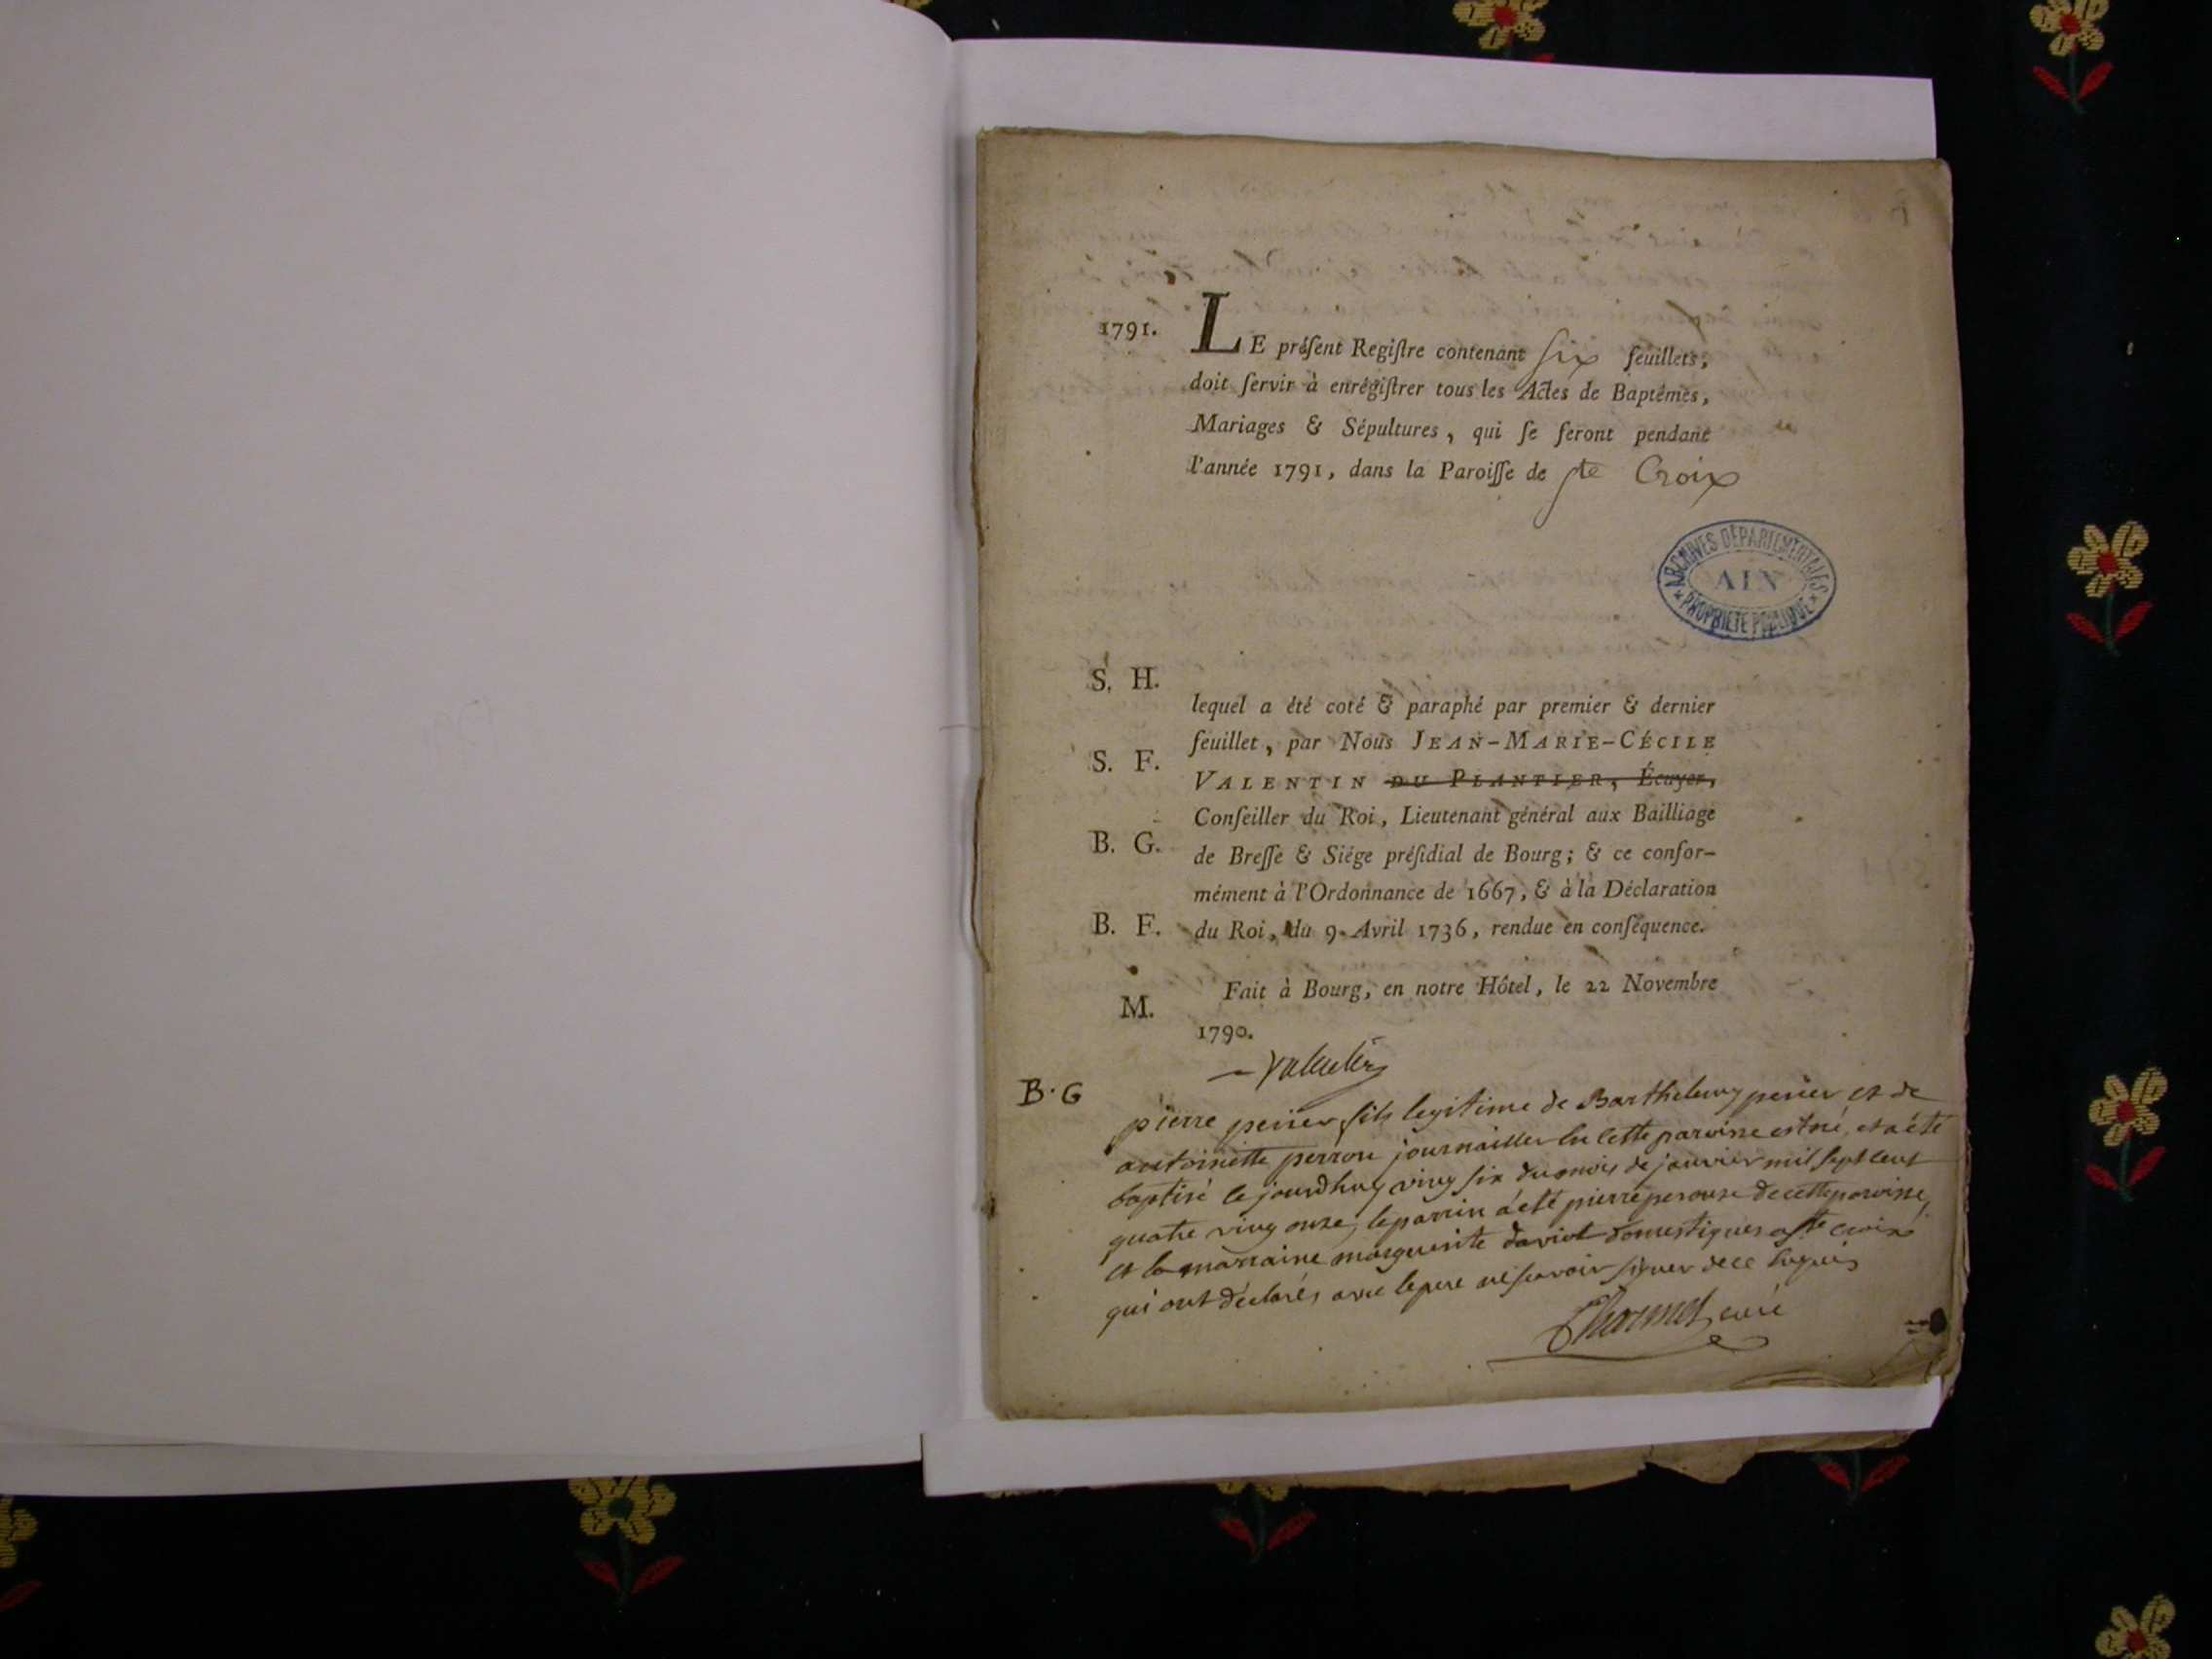 1791. LE préſent Regiſtre contenant six feuillets,
doit ſervir à enrégiſtrer tous les Actes de Baptêmes,
Mariages & Sépultures, qui ſe feront pendant
l'année 1791, dans la Paroiſſe de ste Croix
ARCHIVES DÉPARTEMENTALES
AIN
* PROPRIÉTÉ PUBLIQUE *
S. H.
lequel a été coté & paraphé par premier & dernier
feuillet, par Nous JEAN-MARIE-CÉCILE
S. F.
VALENTIN DU PLANTIER, Écuyer,
Conſeiller du Roi, Lieutenant général aux Bailliage
B. G.
de Breſſe & Siége préſidial de Bourg; & ce confor-
mément à l'Ordonnance de 1667, & à la Déclaration
B. F.
du Roi, du 9 Avril 1736, rendue en conſéquence.
Fait à Bourg, en notre Hôtel, le 22 Novembre
M.
1790.
Valentin
B. G
pierre perier fils legitime de Barthelemy perier et de
antoinette perron journallier en cette paroisse est né, et a été
baptisé ce jourdhuy ving six du mois de janvier mil sept cent
quatre ving onze, le parrin a été pierre perouse de cette paroisse,
et la marraine marguerite daviot domestiques a ste croix
qui ont déclarés avec le pere ne savoir signer de ce requis
curé